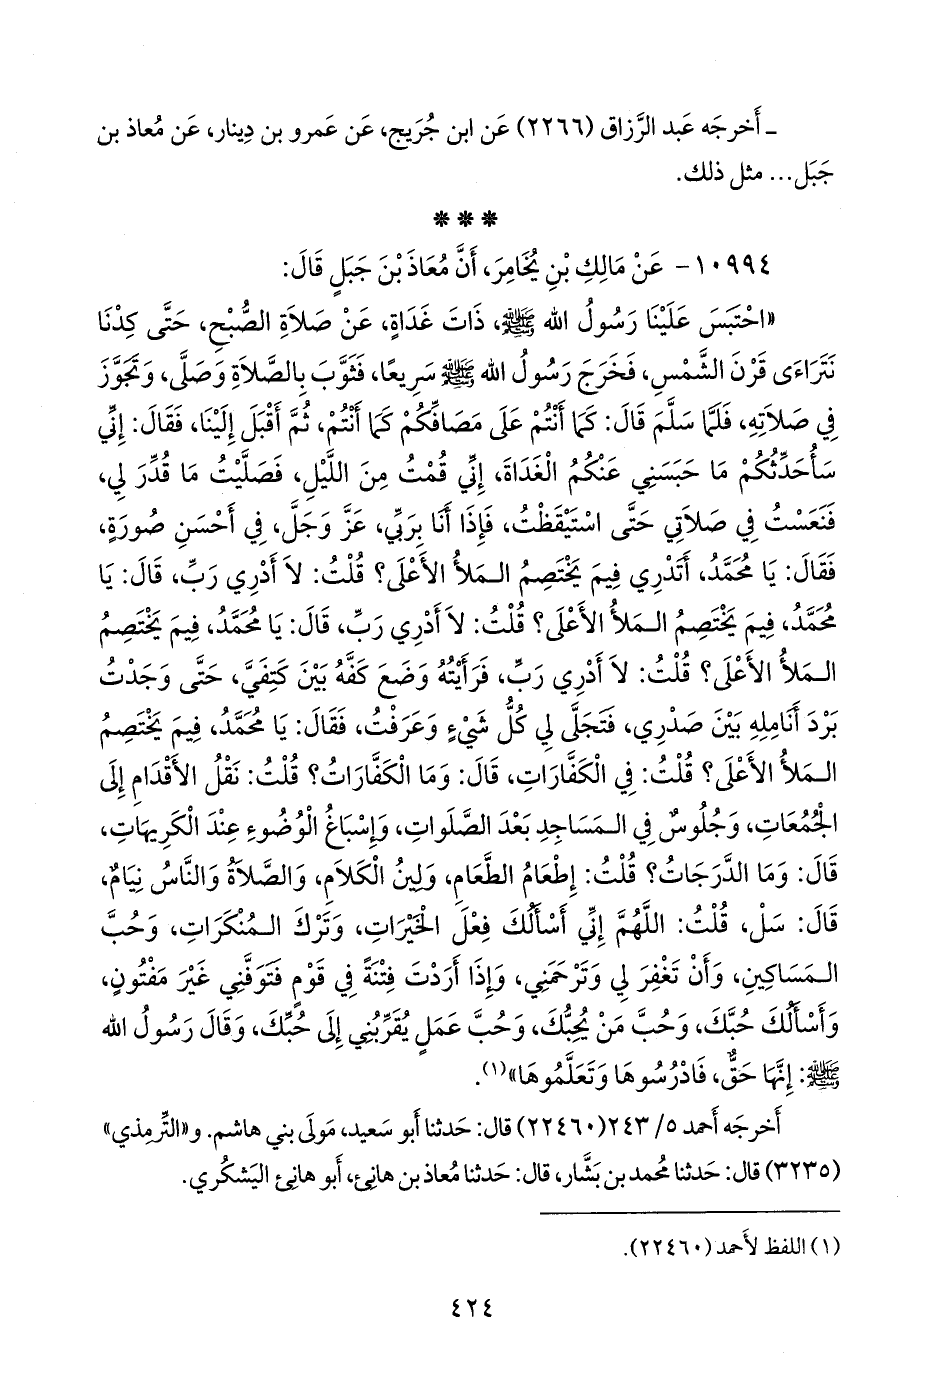 ـ أَخرجَه عَبد الرَّزاق (٢٢٦٦) عَن ابن جُرَيج، عَن عَمرو بن دِينار، عَن مُعاذ بن
جَبَل... مثل ذلك.
* * *
١٠٩٩٤- عَنْ مَالِكِ بْنِ يُخَامِرَ، أَنَّ مُعَاذَ بْنَ جَبَلٍ قَالَ:
«احْتَبَسَ عَلَيْنَا رَسُولُ الله ﷺ، ذَاتَ غَدَاةٍ، عَنْ صَلاَةِ الصُّبْحِ، حَتَّى كِدْنَا
نَتَرَاءَى قَرْنَ الشَّمْسِ، فَخَرَجَ رَسُولُ الله ﷺ سَرِيعًا، فَثُوَّبَ بِالصَّلاَةِ وَصَلَّى، وَتَجَوَّزَ
فِي صَلاَتِهِ، فَلَمَّا سَلَّمَ قَالَ: كَمَا أَنْتُمْ عَلَى مَصَافِّكُمْ كَمَا أَنْتُمْ، ثُمَّ أَقْبَلَ إِلَيْنَا، فَقَالَ: إِنِّي
سَأُحَدِّثُكُمْ مَا حَبَسَنِي عَنْكُمُ الْغَدَاةَ، إِنِّي قُمْتُ مِنَ اللَّيْلِ، فَصَلَّيْتُ مَا قُدِّرَ لِي،
فَنَعَسْتُ فِي صَلاَتِي حَتَّى اسْتَيْقَظْتُ، فَإِذَا أَنَا بِرَبِّي، عَزَّ وَجَلَّ، فِي أَحْسَنِ صُورَةٍ،
فَقَالَ: يَا مُحَمَّدُ، أَتَدْرِي فِيمَ يَخْتَصِمُ الـمَلأُ الأَعْلَى؟ قُلْتُ: لاَ أَدْرِي رَبِّ، قَالَ: يَا
مُحَمَّدُ، فِيمَ يَخْتَصِمُ الـمَلأُ الأَعْلَى؟ قُلْتُ: لاَ أَدْرِي رَبِّ، قَالَ: يَا مُحَمَّدُ، فِيمَ يَخْتَصِمُ
الـمَلأُ الأَعْلَى؟ قُلْتُ: لاَ أَدْرِي رَبِّ، فَرَأَيْتُهُ وَضَعَ كَفَّهُ بَيْنَ كَتِفَيَّ، حَتَّى وَجَدْتُ
بَرْدَ أَنَامِلِهِ بَيْنَ صَدْرِي، فَتَجَلَّى لِي كُلُّ شَيْءٍ وَعَرَفْتُ، فَقَالَ: يَا مُحَمَّدُ، فِيمَ يَخْتَصِمُ
الـمَلأُ الأَعْلَى؟ قُلْتُ: فِي الْكَفَّارَاتِ، قَالَ: وَمَا الْكَفَّارَاتُ؟ قُلْتُ: نَقْلُ الأَقْدَامِ إِلَى
الْجُمُعَاتِ، وَجُلُوسٌ فِي الـمَسَاجِدِ بَعْدَ الصَّلَوَاتِ، وَإِسْبَاغُ الْوُضُوءِ عِنْدَ الْكَرِيهَاتِ،
قَالَ: وَمَا الدَّرَجَاتُ؟ قُلْتُ: إِطْعَامُ الطَّعَامِ، وَلِينُ الْكَلاَمِ، وَالصَّلاَةُ وَالنَّاسُ نِيَامٌ،
قَالَ: سَلْ، قُلْتُ: اللَّهُمَّ إِنِّي أَسْأَلُكَ فِعْلَ الْخَيْرَاتِ، وَتَرْكَ الـمُنْكَرَاتِ، وَحُبَّ
الـمَسَاكِينِ، وَأَنْ تَغْفِرَ لِي وَتَرْحَمَنِي، وَإِذَا أَرَدْتَ فِتْنَةً فِي قَوْمٍ فَتَوَفَّنِي غَيْرَ مَفْتُونٍ،
وَأَسْأَلُكَ حُبَّكَ، وَحُبَّ مَنْ يُحِبُّكَ، وَحُبَّ عَمَلٍ يُقَرِّبُنِي إِلَى حُبِّكَ، وَقَالَ رَسُولُ الله
ﷺ: إِنَّهَا حَقٌّ، فَادْرُسُوهَا وَتَعَلَّمُوهَا»(١).
أَخرجَه أَحمد ٥/ ٢٤٣(٢٢٤٦٠) قال: حَدثنا أَبو سَعيد، مَولَى بني هاشم. و«التِّرمِذي»
(٣٢٣٥) قال: حَدثنا مُحمد بن بَشَّار، قال: حَدثنا مُعاذ بن هانِئ، أَبو هانِئ اليَشكُري.
(١) اللفظ لأَحمد (٢٢٤٦٠).
٤٢٤